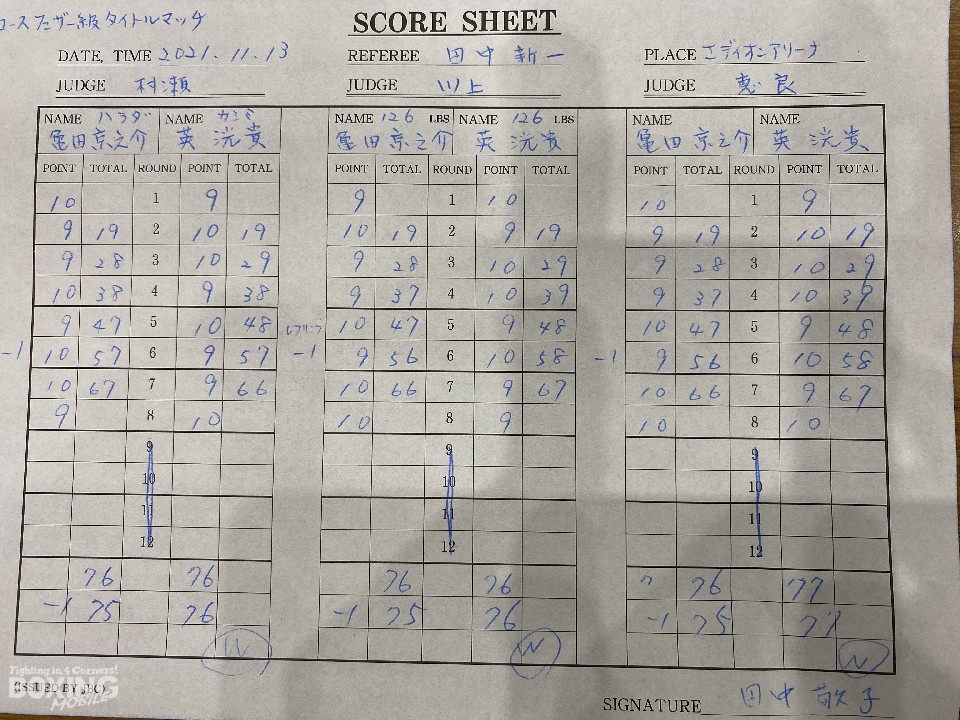 SCORE SHEET
タイトルマッチ
DATE, TIME 2021.11.13 REFEREE 田中 新一 PLACE エディオンアリーナ
JUDGE 村瀬 JUDGE 川上 JUDGE 恵良
NAME ハラダ NAME カシミ NAME 126 LBS NAME 126 LBS NAME NAME
亀田京之介 英 洸貴 亀田京之介 英 洸貴 亀田京之介 英 洸貴
POINT TOTAL ROUND POINT TOTAL POINT TOTAL ROUND POINT TOTAL POINT TOTAL ROUND POINT TOTAL
10 1 9 9 1 10 10 1 9
9 19 2 10 19 10 19 2 9 19 9 19 2 10 19
9 28 3 10 29 9 28 3 10 29 9 28 3 10 29
10 38 4 9 38 9 37 4 10 39 9 37 4 10 39
9 47 5 10 48 10 47 5 9 48 10 47 5 9 48
-1 10 57 6 9 57 -1 9 56 6 10 58 -1 9 56 6 10 58
10 67 7 9 66 10 66 7 9 67 10 66 7 9 67
9 8 10 10 8 9 10 8 10
9 9 9
10 10 10
11 11 11
12 12 12
76 76 76 76 76 77
-1 75 76 -1 75 76 -1 75 77
W W W
Fighting in 4 Corners!
BOXING
MOBILE
(ISSUED BY JBC)
SIGNATURE 田中 敏子